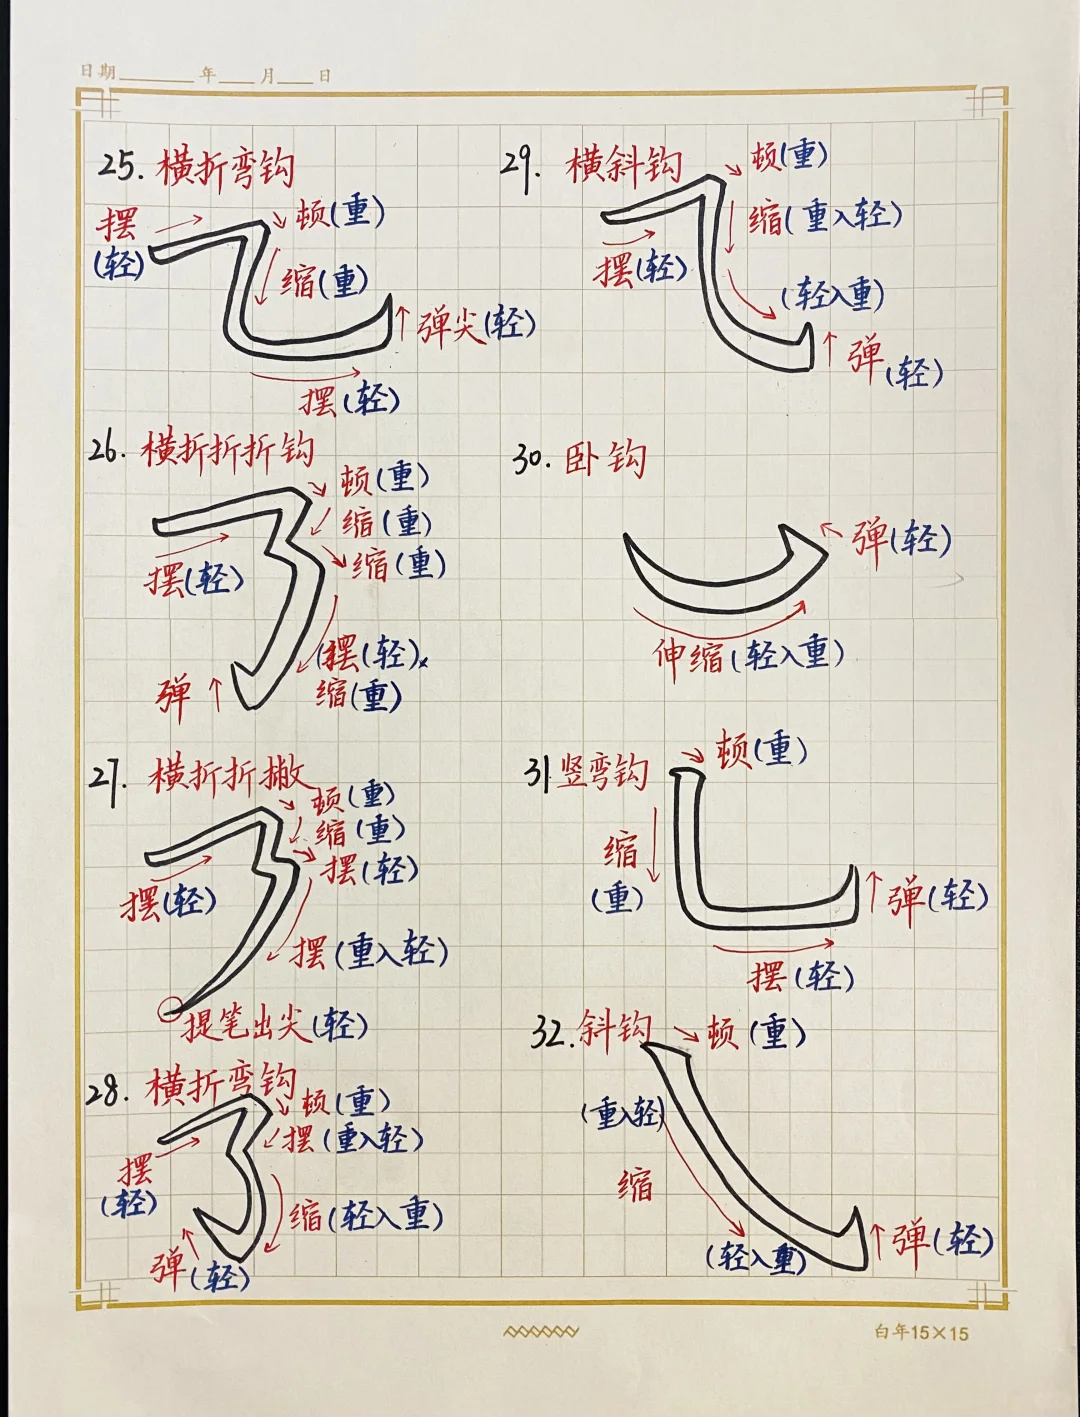 日期____年____月____日
25. 横折弯钩
摆
(轻)
顿(重)
缩(重)
弹尖(轻)
摆(轻)
26. 横折折折钩
顿(重)
缩(重)
缩(重)
摆(轻)
摆(轻)
缩(重)
弹
27. 横折折撇
顿(重)
缩(重)
摆(轻)
摆(轻)
摆(重入轻)
提笔出尖(轻)
28. 横折弯钩
顿(重)
摆(重入轻)
摆
(轻)
缩(轻入重)
弹(轻)
29. 横斜钩
顿(重)
缩(重入轻)
摆(轻)
(轻入重)
弹(轻)
30. 卧钩
弹(轻)
伸缩(轻入重)
31 竖弯钩
顿(重)
缩
(重)
弹(轻)
摆(轻)
32. 斜钩
顿(重)
(重入轻)
缩
(轻入重)
弹(轻)
白年15×15